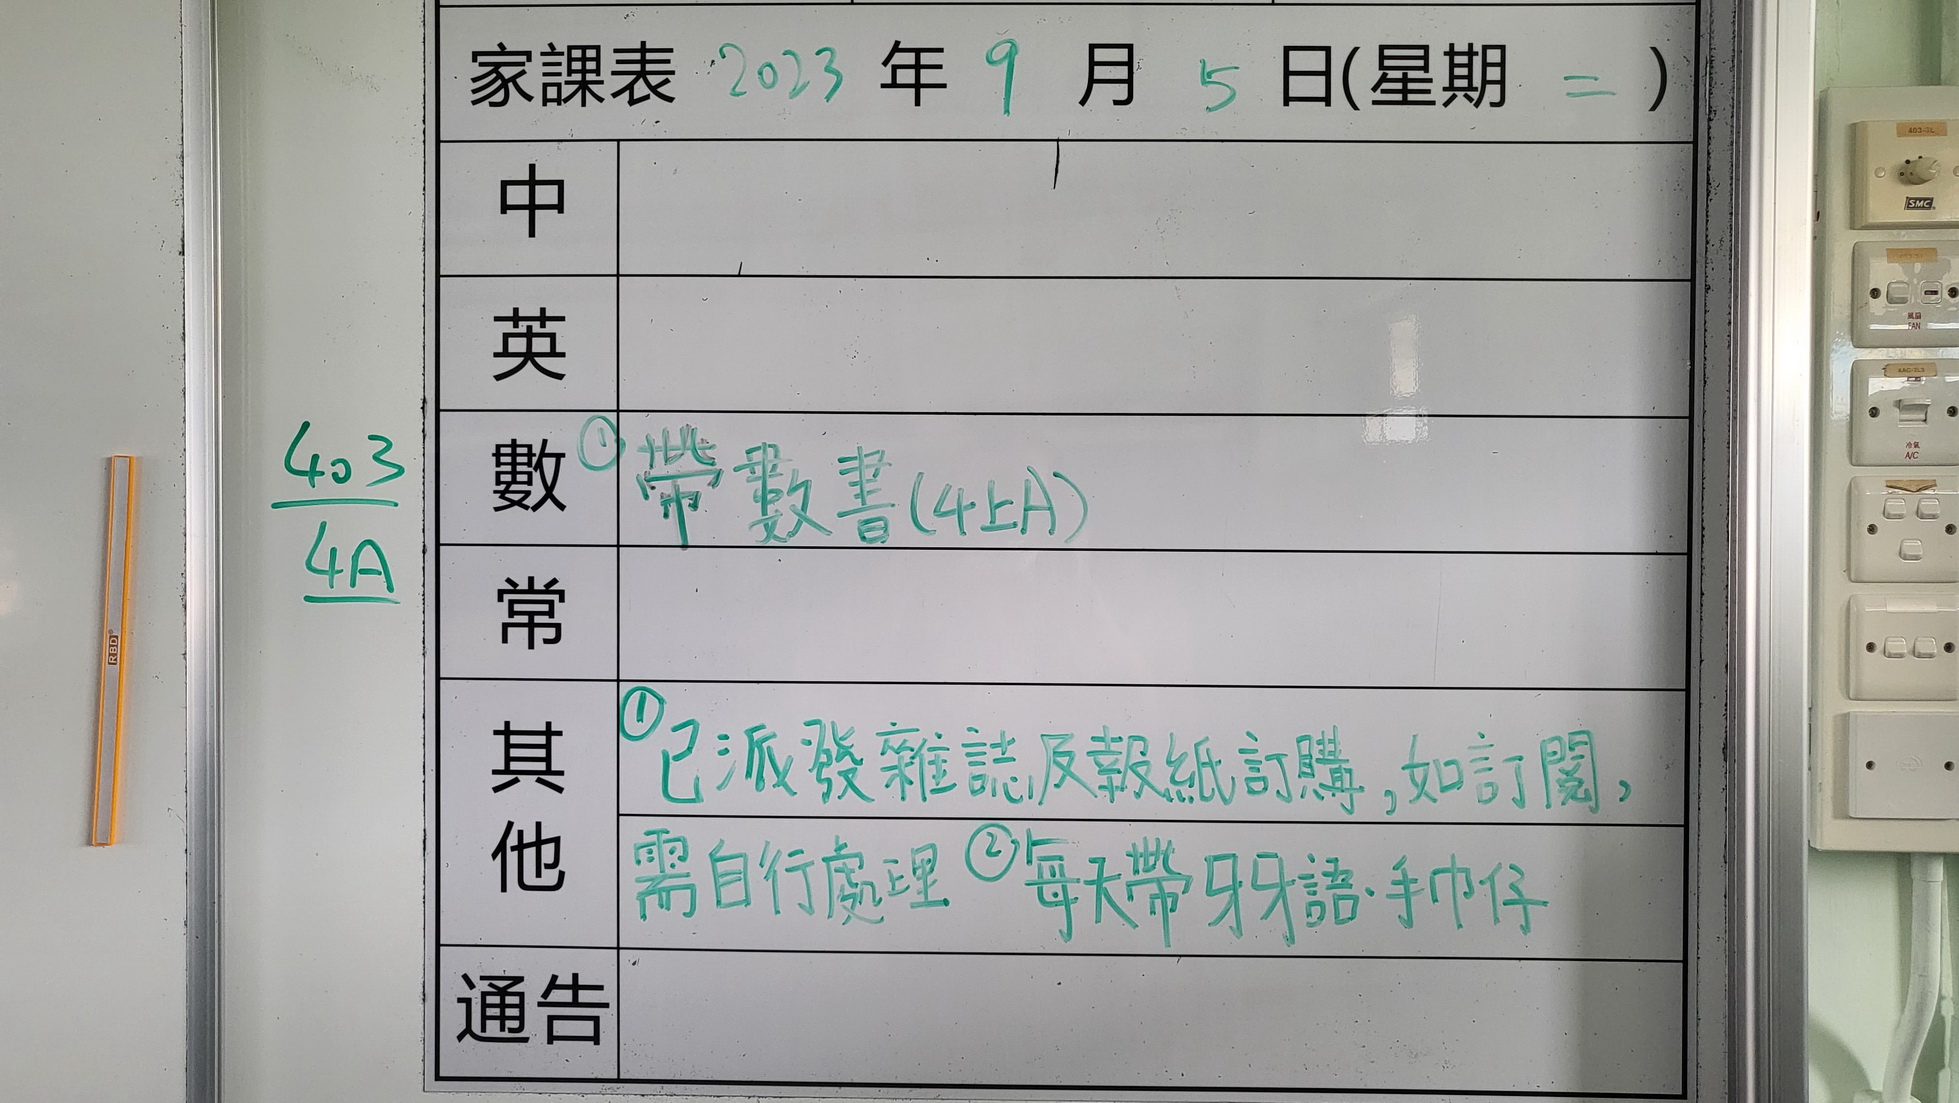 家課表 2023 年 9 月 5 日(星期 二 )
中
英
數 ① 帶數書(4上A)
常
其他 ① 已派發雜誌及報紙訂購,如訂閱,
需自行處理 ② 每天帶牙牙語·手巾仔
通告
403
4A
RBD
403-3L
SMC
風扇
FAN
冷氣
A/C